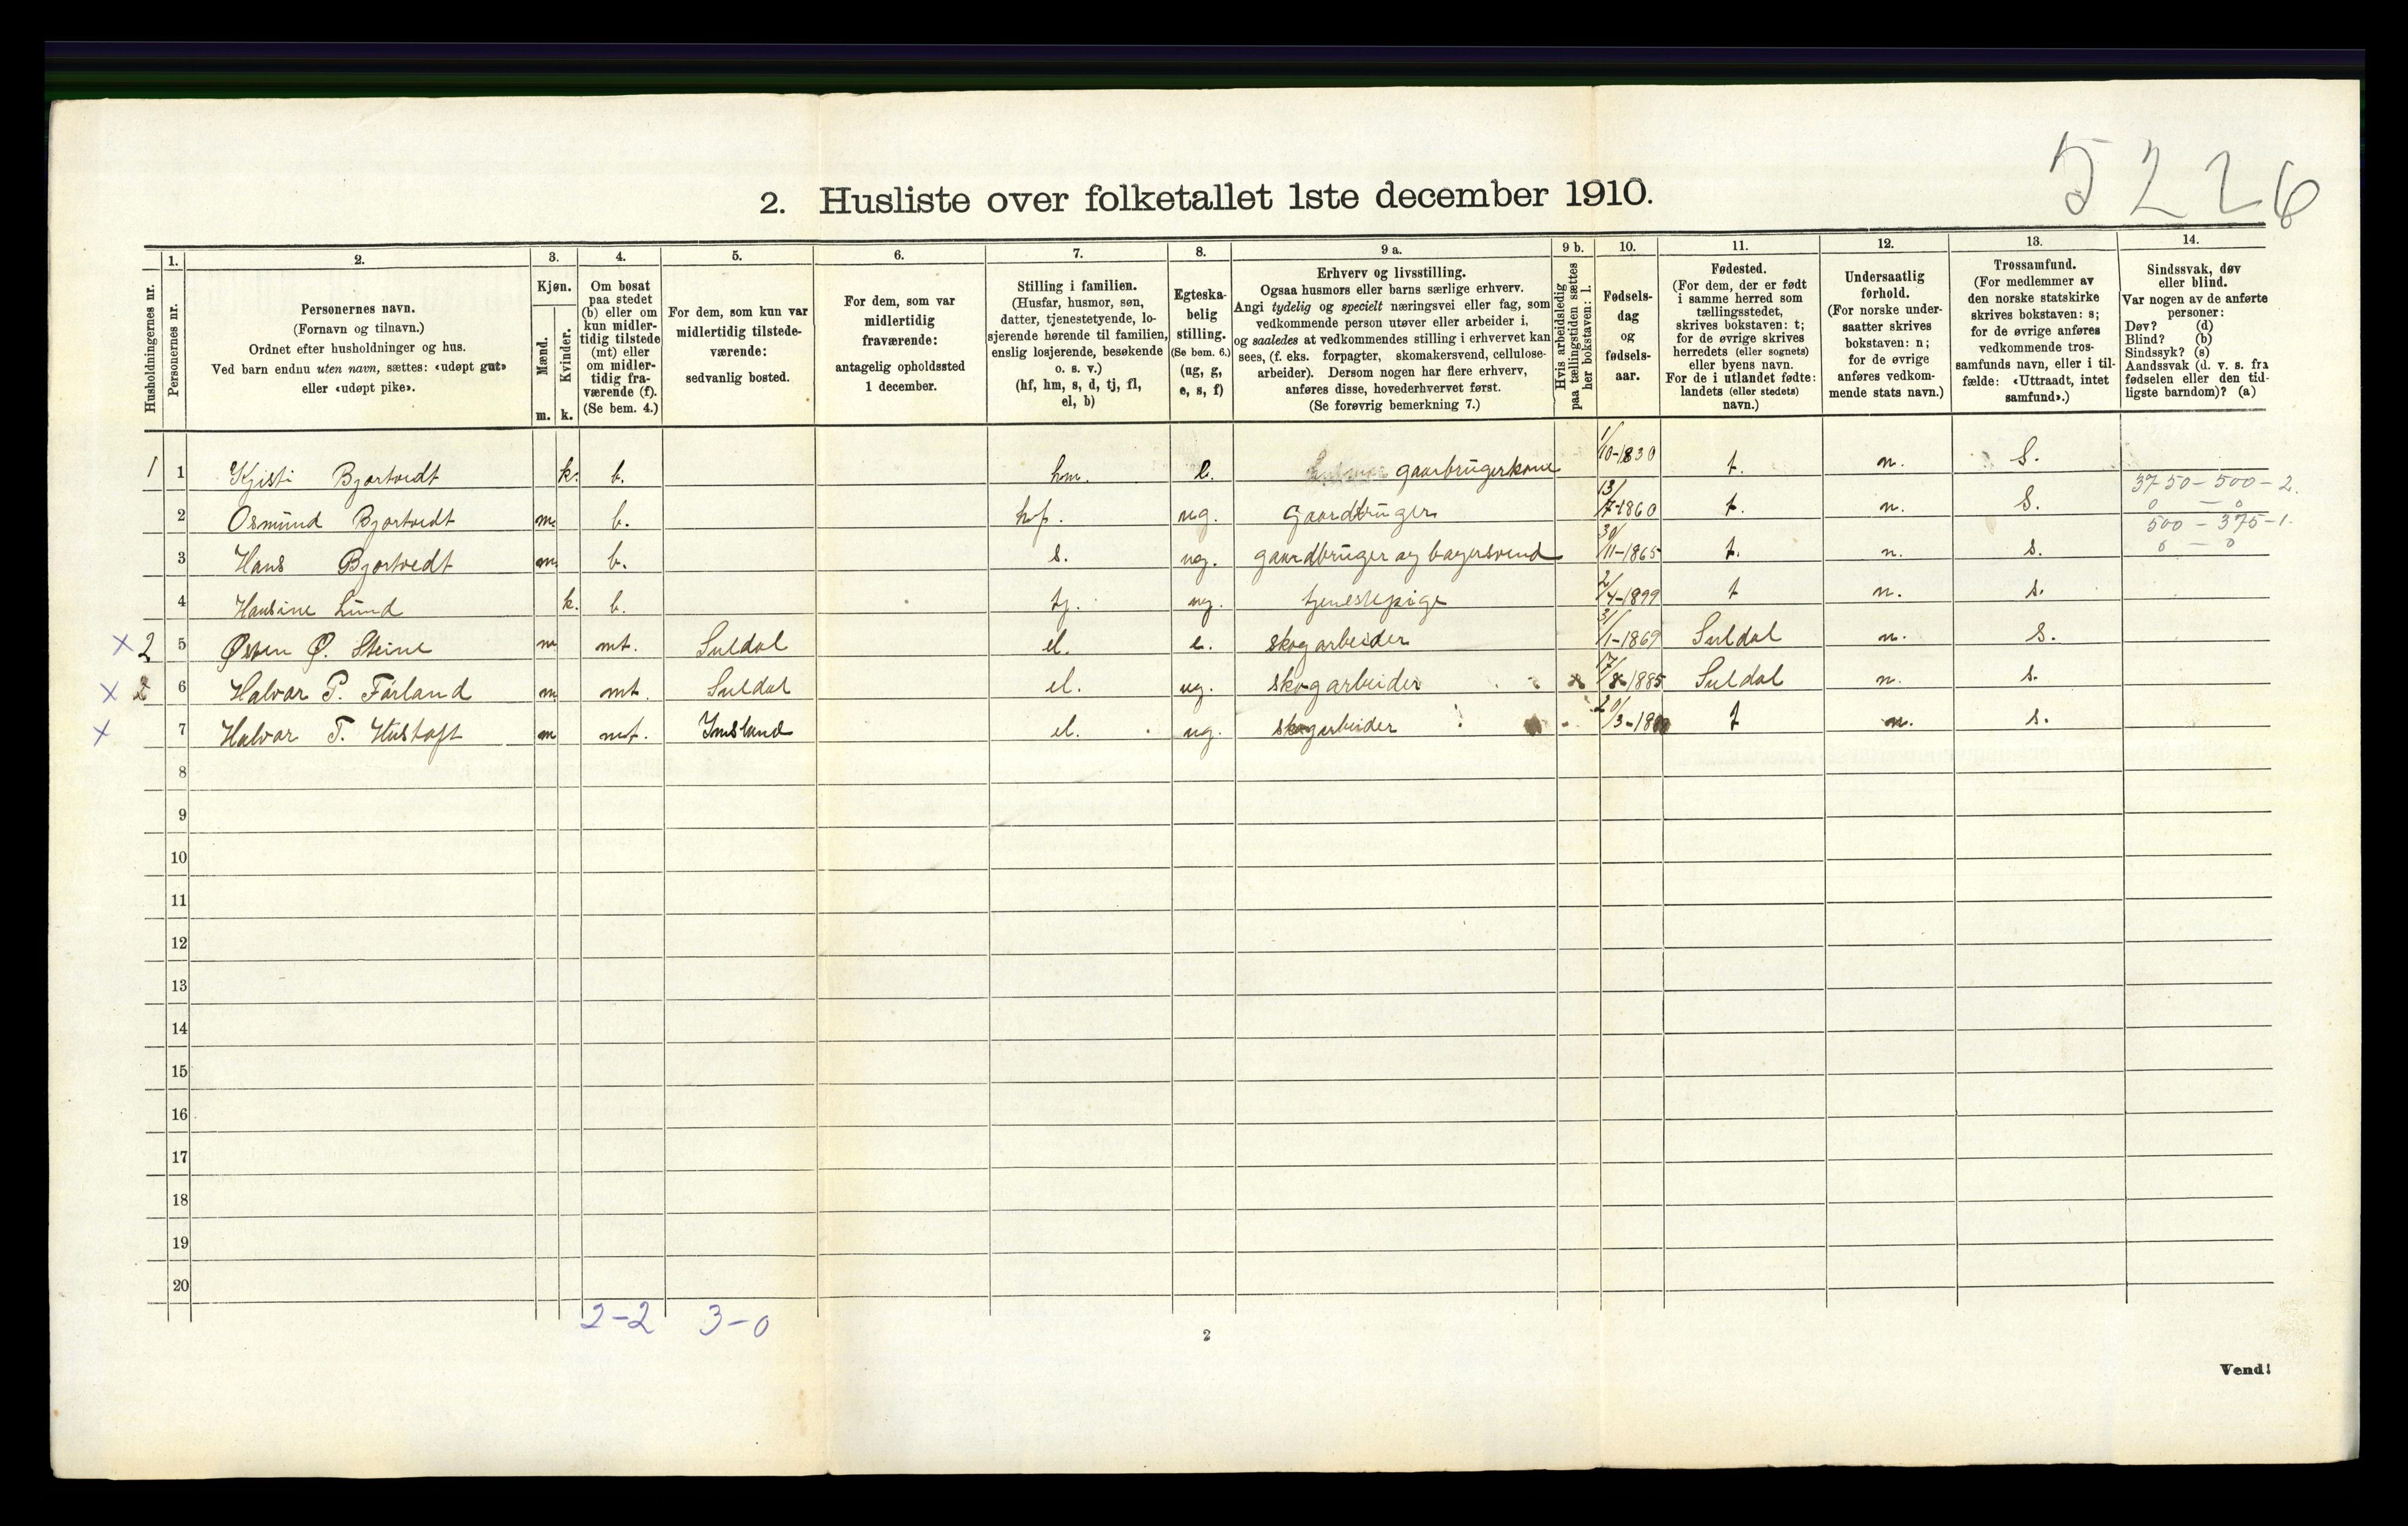 5226
2. Husliste over folketallet 1ste december 1910.
Husholdningernes nr.
1.
Personernes nr.
2.
Personernes navn.
(Fornavn og tilnavn.)
Ordnet efter husholdninger og hus.
Ved barn endnu uten navn, sættes: «udøpt gut»
eller «udøpt pike».
3.
Kjøn.
Mænd.
Kvinder.
m. k.
4.
Om bosat
paa stedet
(b) eller om
kun midler-
tidig tilstede
(mt) eller
om midler-
tidig fra-
værende (f).
(Se bem. 4.)
5.
For dem, som kun var
midlertidig tilstede-
værende:
sedvanlig bosted.
6.
For dem, som var
midlertidig
fraværende:
antagelig opholdssted
1 december.
7.
Stilling i familien.
(Husfar, husmor, søn,
datter, tjenestetyende, lo-
sjerende hørende til familien,
enslig losjerende, besøkende
o. s. v.)
(hf, hm, s, d, tj, fl,
el, b)
8.
Egteska-
belig
stilling.
(Se bem. 6.)
(ug, g,
e, s, f)
9 a.
Erhverv og livsstilling.
Ogsaa husmors eller barns særlige erhverv.
Angi tydelig og specielt næringsvei eller fag, som
vedkommende person utøver eller arbeider i,
og saaledes at vedkommendes stilling i erhvervet kan
sees, (f. eks. forpagter, skomakersvend, cellulose-
arbeider). Dersom nogen har flere erhverv,
anføres disse, hovederhvervet først.
(Se forøvrig bemerkning 7.)
9 b.
Hvis arbeidsledig
paa tællingstiden sættes
her bokstaven: l.
10.
Fødsels-
dag
og
fødsels-
aar.
11.
Fødested.
(For dem, der er født
i samme herred som
tællingsstedet,
skrives bokstaven: t;
for de øvrige skrives
herredets (eller sognets)
eller byens navn.
For de i utlandet fødte:
landets (eller stedets)
navn.)
12.
Undersaatlig
forhold.
(For norske under-
saatter skrives
bokstaven: n;
for de øvrige
anføres vedkom-
mende stats navn.)
13.
Trossamfund.
(For medlemmer av
den norske statskirke
skrives bokstaven: s;
for de øvrige anføres
vedkommende tros-
samfunds navn, eller i til-
fælde: «Uttraadt, intet
samfund».)
14.
Sindssvak, døv
eller blind.
Var nogen av de anførte
personer:
Døv? (d)
Blind? (b)
Sindssyk? (s)
Aandssvak (d. v. s. fra
fødselen eller den tid-
ligste barndom)? (a)
1 1 Kjisti Bjortvedt k. b. hm. e. gaarbrugerkone 1/10-1830 t. n. S.
2 Osmund Bjortvedt m. b. hf. ug. Gaardbruger 13/7-1860 t. n. S. 3750-500-2. 0 - 0
3 Hans Bjortvedt m. b. s. ug. gaardbruger og bagersvend 30/11-1865 t. n. s. 500-375-1. 0 - 0
4 Hansine Lund k. b. tj. ug. tjenestepige 2/4-1899 t n. s.
x 2 5 Østen Ø. Steine m mt. Suldal el. e. skogarbeider 31/1-1869 Suldal n. s.
x 2 6 Halvor P. Førland m mt. Suldal el. ug. skogarbeider x 17/8-1885 Suldal n. s.
x 7 Halvor T. Hustoft m mt. Imsland el. ug. skogarbeider 20/3- t n. s.
8
9
10
11
12
13
14
15
16
17
18
19
20
2-2 3-0
2
Vend!